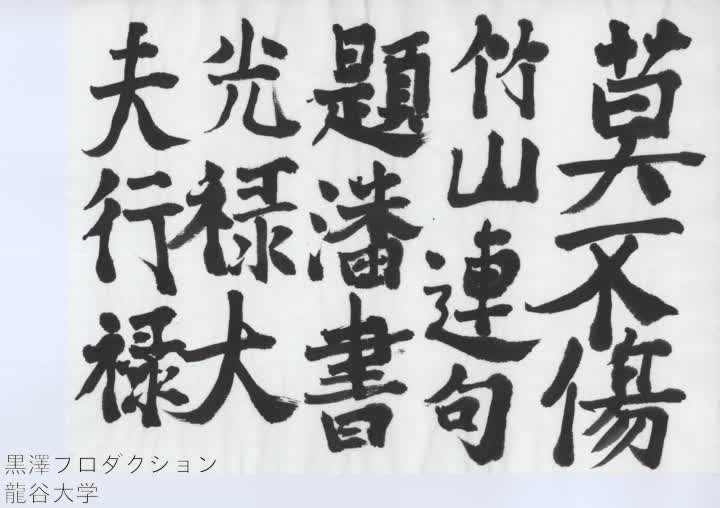 莫不傷
竹山連句
題潘書
光禄大
夫行禄
黒澤プロダクション
龍谷大学